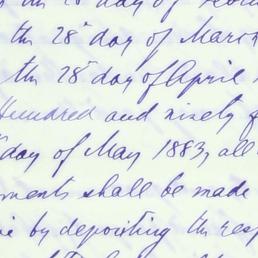 the 28th day of
the 28" day of March
the 28" day of April
Hundred and ninety
day of May 1883, all
ments shall be made
by depositing the resp